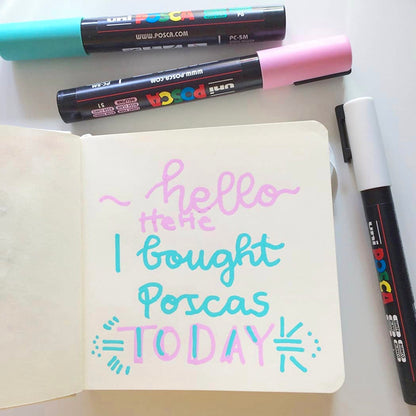 PC-5M
WWW.POSCA.COM
PC-5M
WWW.POSCA.COM
uni POSCA
51
~ hello
HeHe
I bought
Poscas
TODAY
uni
POSCA